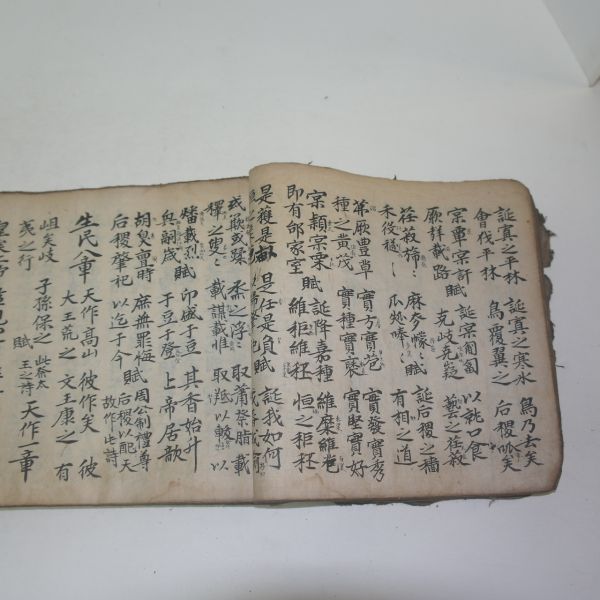 誕寘之平林 誕寘之寒水 鳥乃去矣
會伐平林 鳥覆翼之 后稷呱矣
實覃實訏 賦 誕實匍匐 以就口食
厥聲載路 克岐克嶷 蓺之荏菽
荏菽旆〻 麻麥幪〻 賦 誕后稷之穡
禾役穟〻 瓜瓞唪〻 有相之道
茀厥豊草 實方實苞 實發實秀
種之黄茂 實種實褎 實堅實好
實穎實栗 賦 誕降嘉種 維糜維芑
即有邰家室 維秬維秠 恒之秬秠
是穫是畝 是任是負 賦 誕我如何
或簸或蹂 烝之浮〻 取蕭祭脂 載
釋之叟〻 載謀載惟 取羝以軷 以
燔載烈 賦 卬盛于豆 其香始升
興嗣歲 于豆于登 上帝居歆
胡臭亶時 庶無罪悔 賦 周公制禮尊
后稷肇祀 以迄于今 后稷以配天 故作此詩
生民八章 天作高山 彼作矣 彼
大王荒之 文王康之 有
岨矣岐 子孫保之 此祭太王之詩
夷之行 賦 天作一章